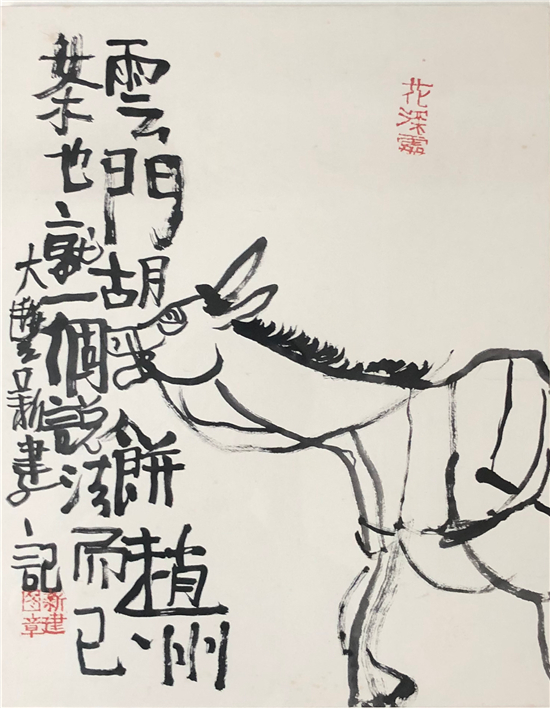 花深處
雲門胡餅趙州
茶也就一個說法而已
大豐新建記
新建
图章